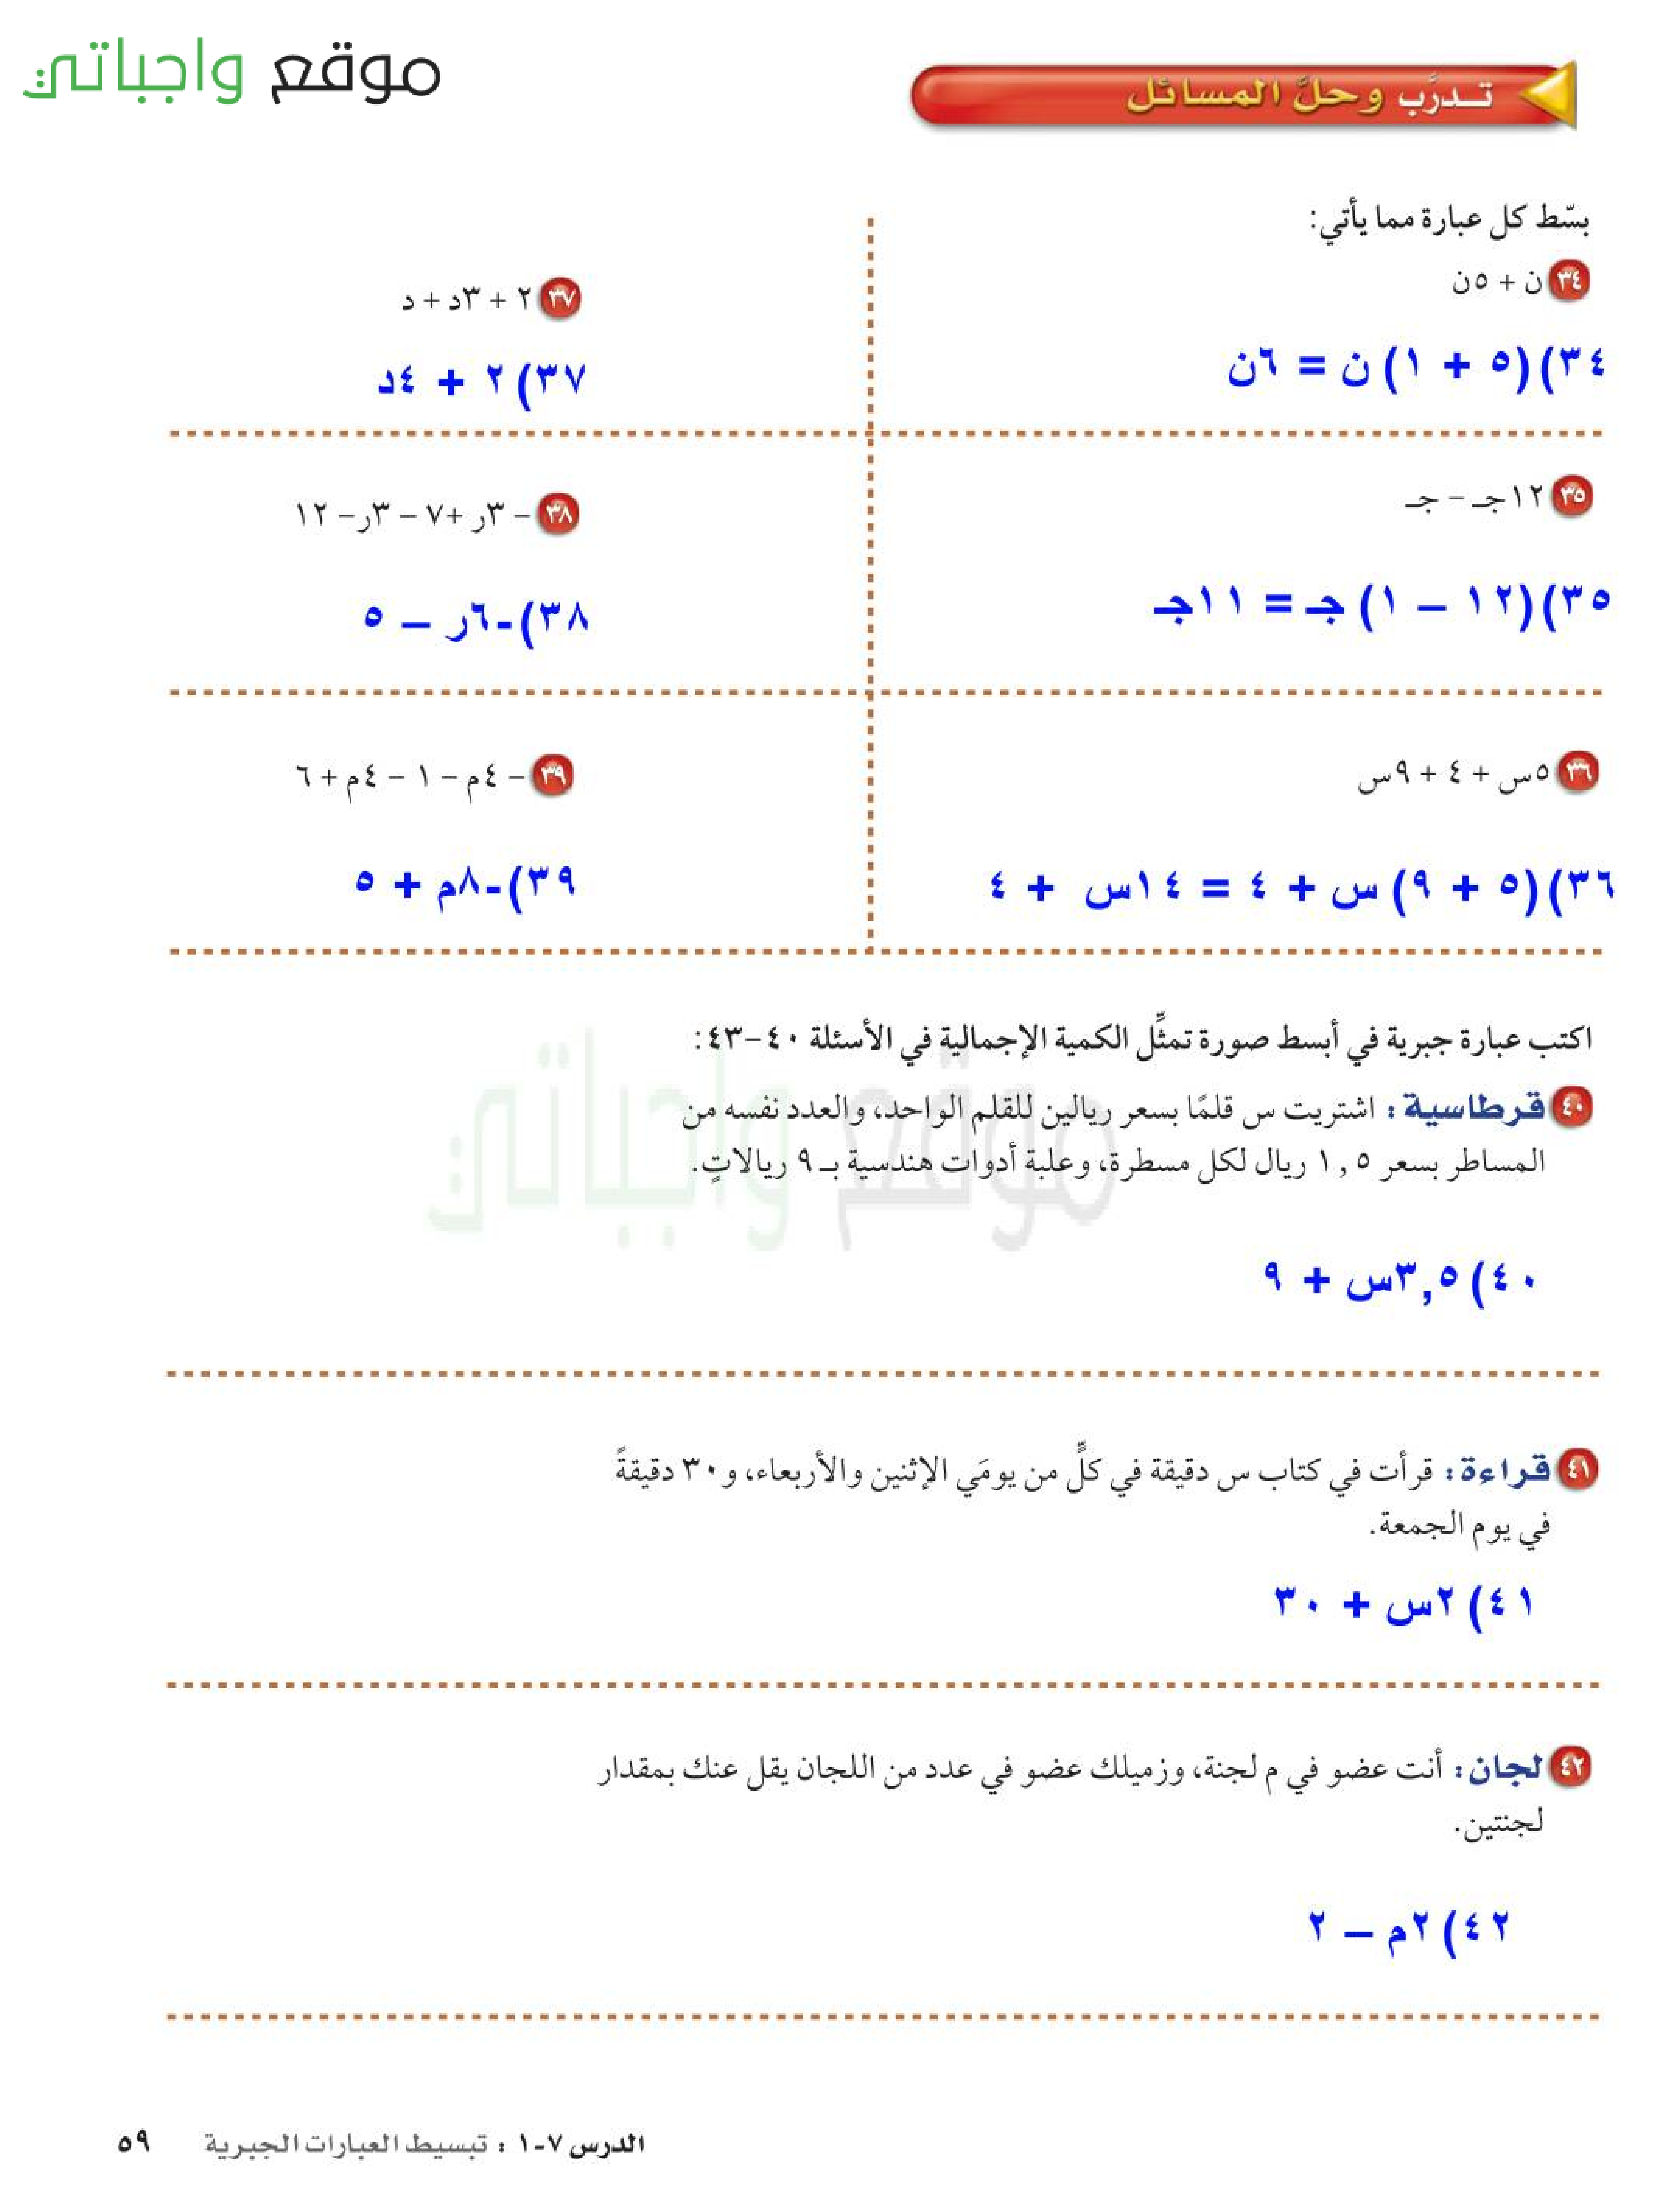 موقع واجباتي
تدرَّب وحلَّ المسائل
بسّط كل عبارة مما يأتي:
٣٤ ن + ٥ن
٣٤) (٥ + ١) ن = ٦ن
٣٥ ١٢جـ – جـ
٣٥) (١٢ – ١) جـ = ١١جـ
٣٦ ٥س + ٤ + ٩س
٣٦) (٥ + ٩) س + ٤ = ١٤س + ٤
٣٧ ٢ + ٣د + د
٣٧) ٢ + ٤د
٣٨ – ٣ر +٧ – ٣ر– ١٢
٣٨) -٦ر – ٥
٣٩ – ٤م – ١ – ٤م + ٦
٣٩) -٨م + ٥
اكتب عبارة جبرية في أبسط صورة تمثِّل الكمية الإجمالية في الأسئلة ٤٠–٤٣:
٤٠ قرطاسية: اشتريت س قلمًا بسعر ريالين للقلم الواحد، والعدد نفسه من
المساطر بسعر ١,٥ ريال لكل مسطرة، وعلبة أدوات هندسية بـ ٩ ريالاتٍ.
موقع واجباتي
٤٠) ٣,٥س + ٩
٤١ قراءة: قرأت في كتاب س دقيقة في كلٍّ من يومَي الإثنين والأربعاء، و٣٠ دقيقةً
في يوم الجمعة.
٤١) ٢س + ٣٠
٤٢ لجان: أنت عضو في م لجنة، وزميلك عضو في عدد من اللجان يقل عنك بمقدار
لجنتين.
٤٢) ٢م – ٢
الدرس ٧-١ : تبسيط العبارات الجبرية ٥٩